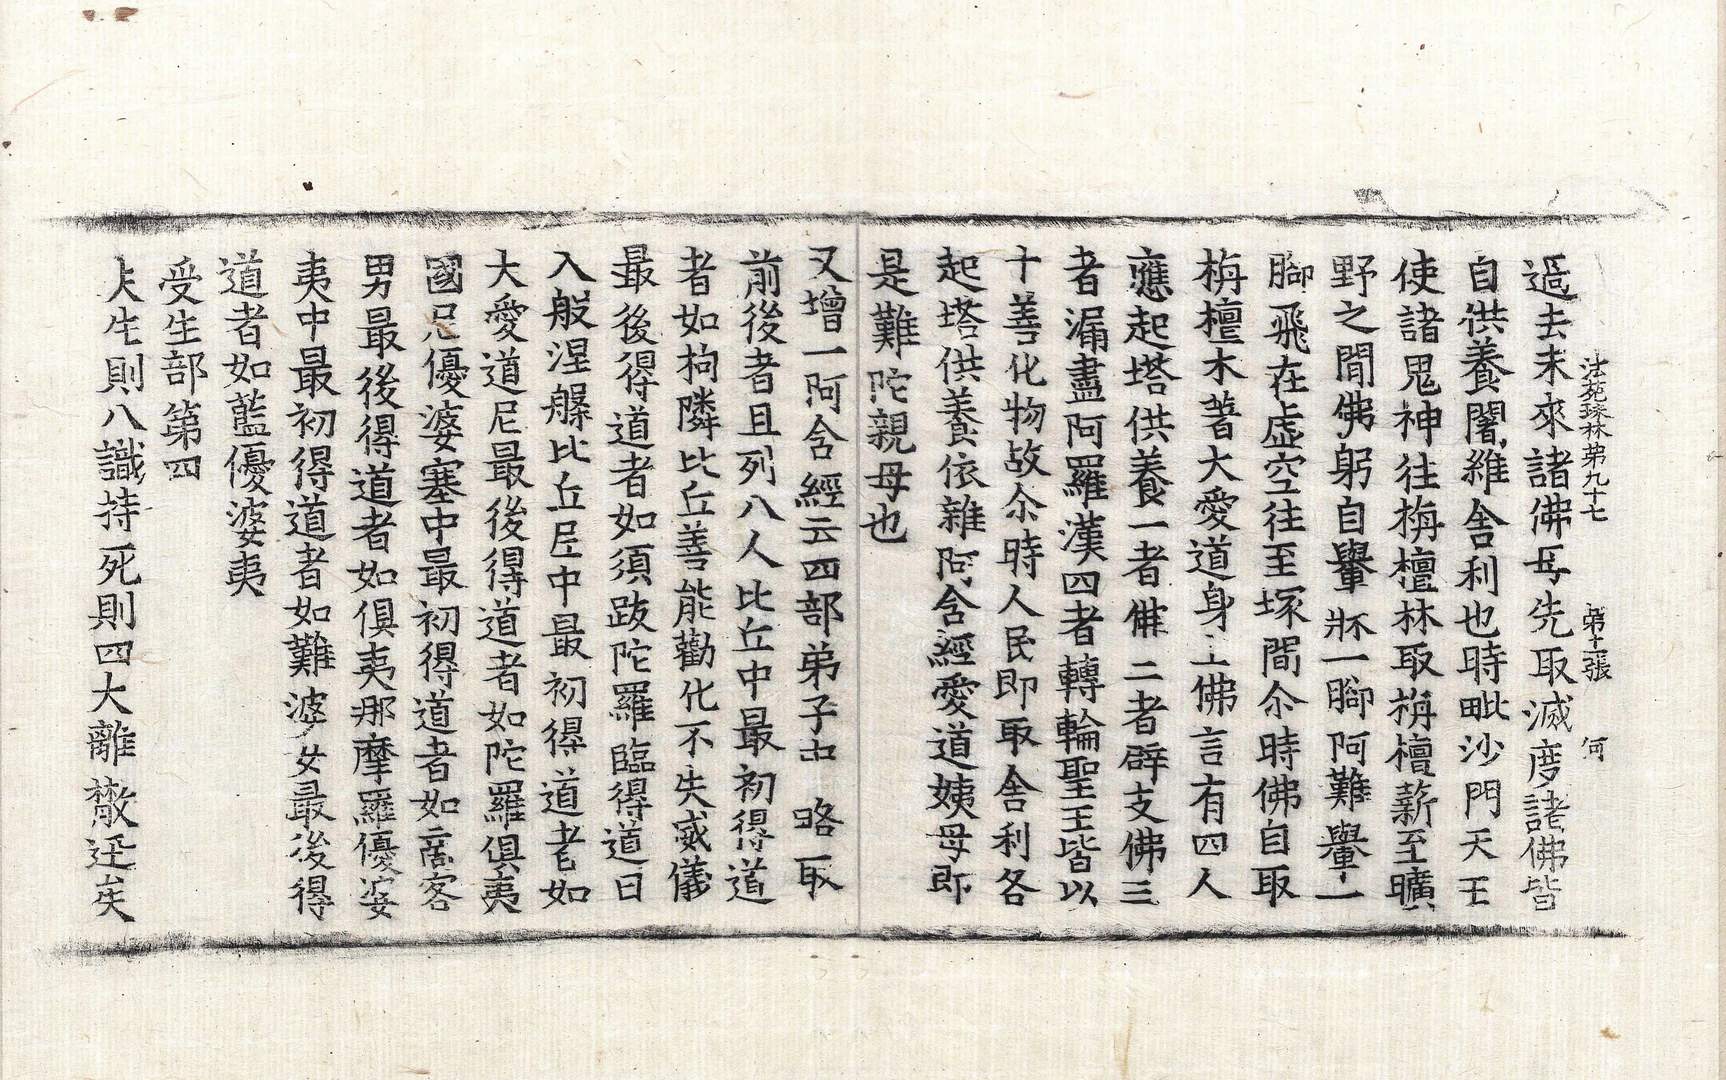 法苑珠林第九十七　第十二張　何
過去未來諸佛母先取滅度諸佛皆
自供養闍維舍利也時毗沙門天王
使諸鬼神往栴檀林取栴檀薪至曠
野之間佛躬自轝牀一脚阿難轝一
脚飛在虛空往至塚間尒時佛自取
栴檀木著大愛道身上佛言有四人
應起塔供養一者佛二者辟支佛三
者漏盡阿羅漢四者轉輪聖王皆以
十善化物故尒時人民即取舍利各
起塔供養依雜阿含經愛道姨母即
是難陀親母也
又增一阿含經云四部弟子中略取
前後者且列八人比丘中最初得道
者如拘隣比丘善能勸化不失威儀
最後得道者如須跋陀羅臨得道日
入般涅槃比丘尼中最初得道者如
大愛道尼最後得道者如陀羅俱夷
國尼優婆塞中最初得道者如商客
男最後得道者如俱夷那摩羅優婆
夷中最初得道者如難婆女最後得
道者如藍優婆夷
受生部第四
夫生則八識持死則四大離散迁矣